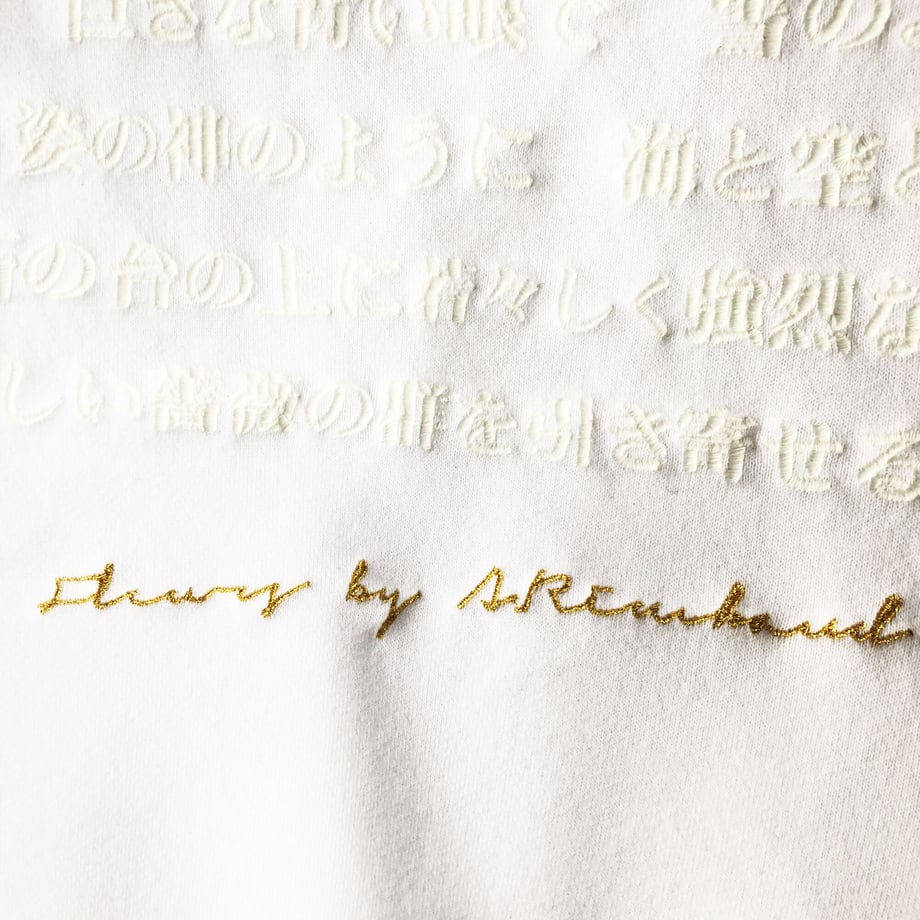 きな青い眼で 雪の
姿の神のように 海と空と
の台の上に 若々しく強烈な
しい薔薇の群を引き寄せる
Fleurs by A.Rimbaud